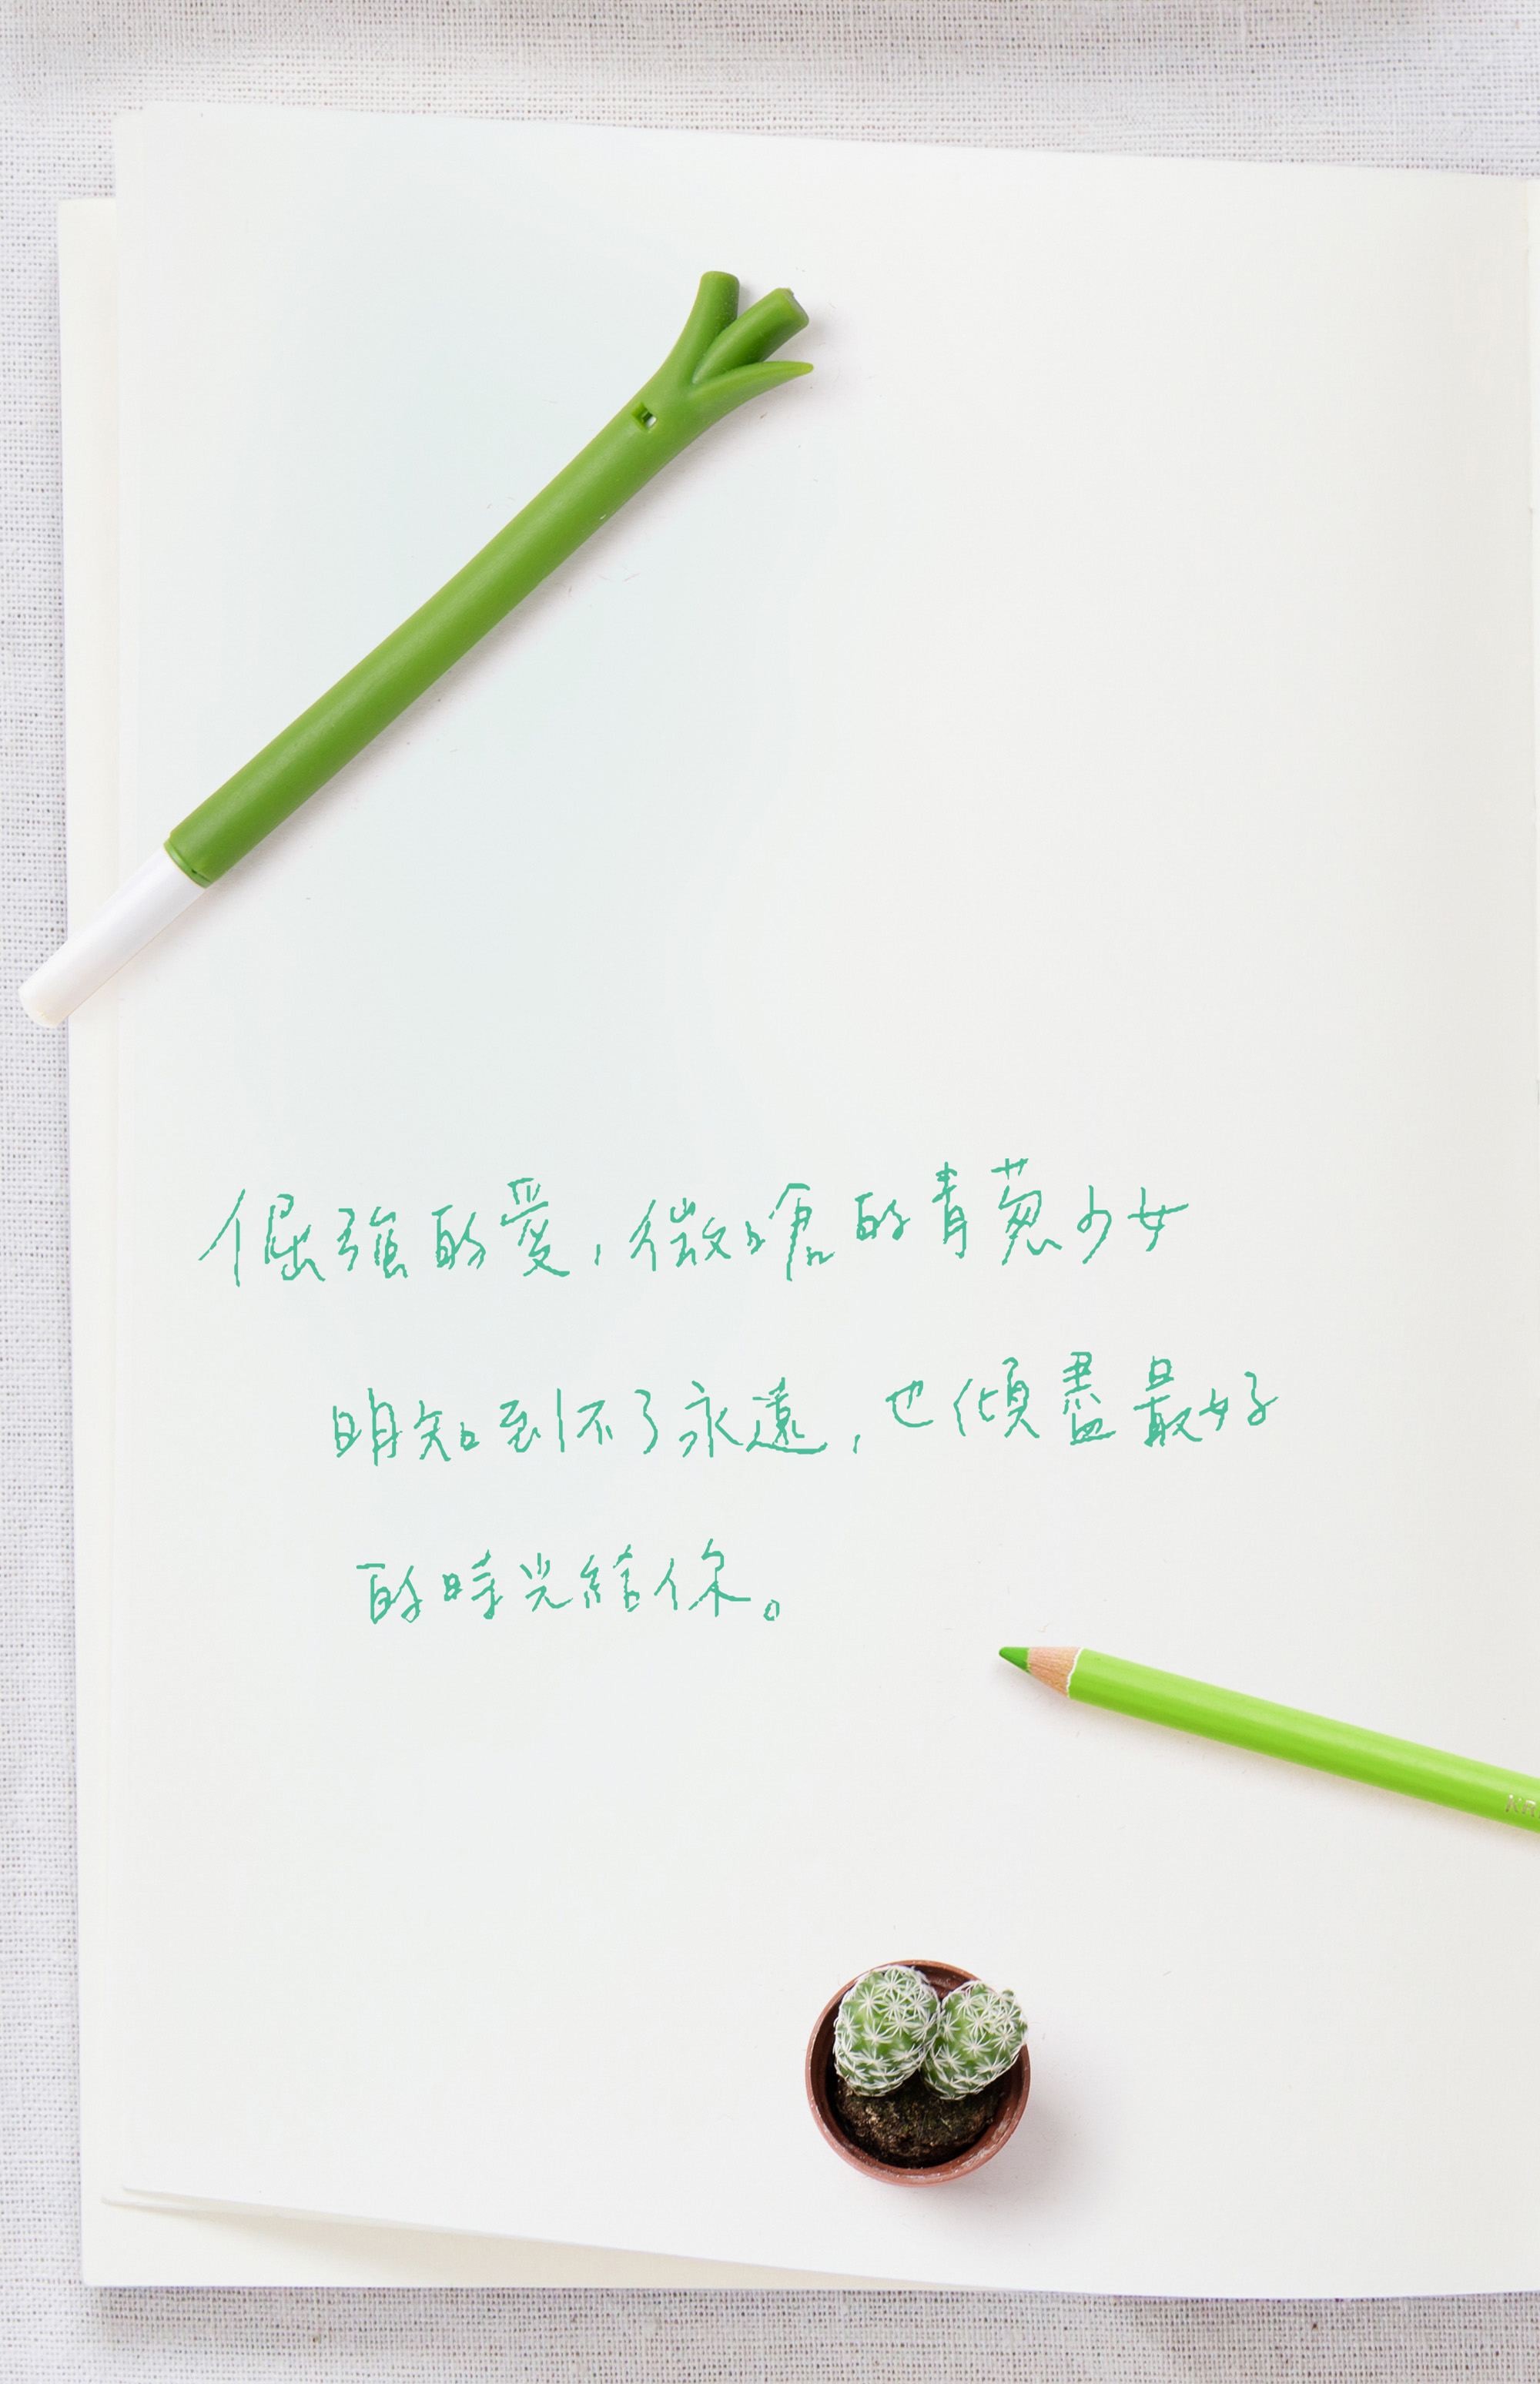 倔強的愛，微嗆的青蔥少女
明知到不了永遠，也傾盡最好
的時光給你。